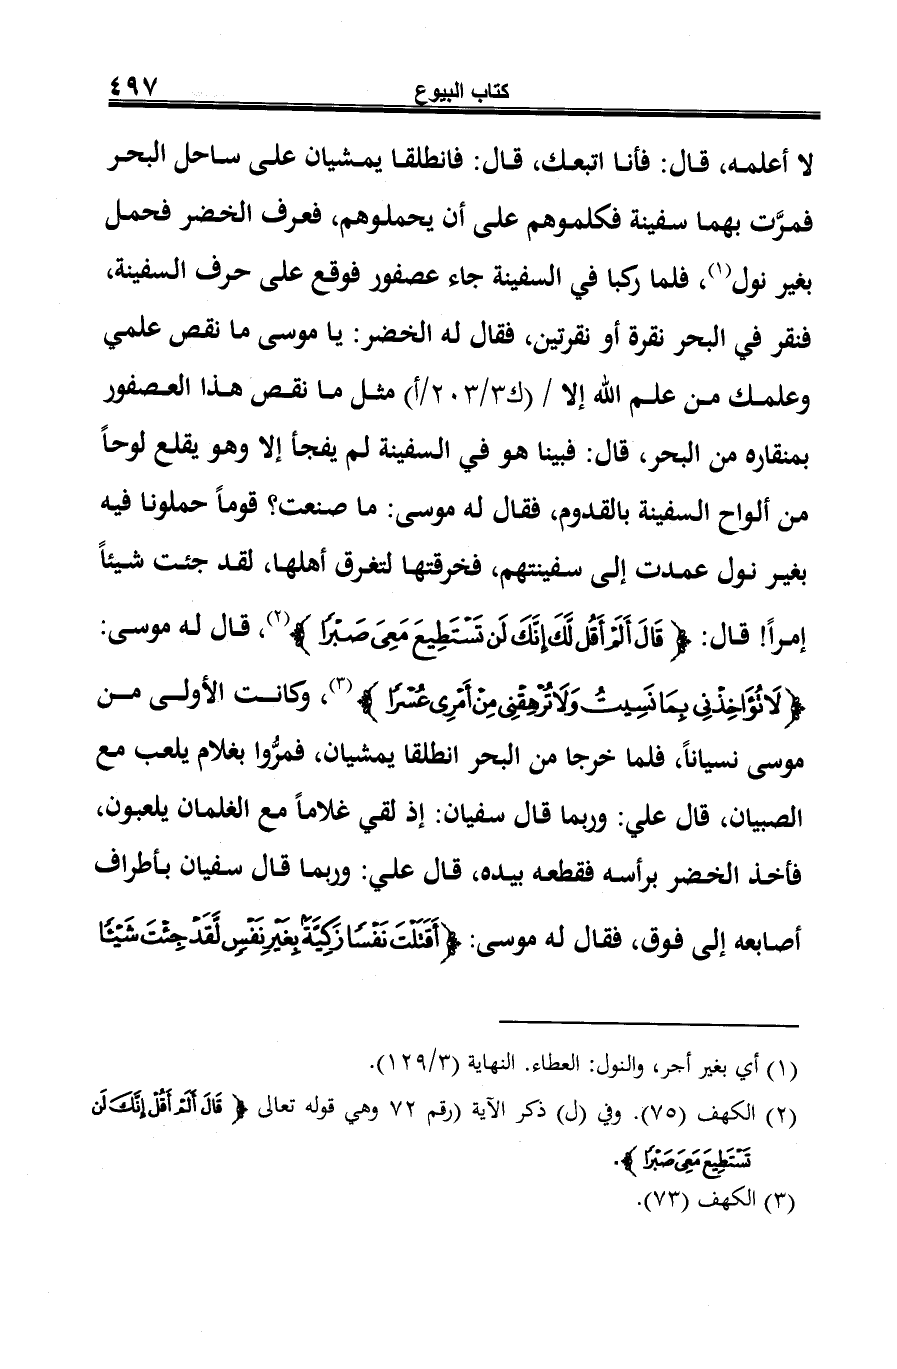 كتاب البيوع ٤٩٧
لا أعلمه، قال: فأنا اتبعك، قال: فانطلقا يمشيان على ساحل البحر
فمرَّت بهما سفينة فكلموهم على أن يحملوهم، فعرف الخضر فحمل
بغير نول(١)، فلما ركبا في السفينة جاء عصفور فوقع على حرف السفينة،
فنقر في البحر نقرة أو نقرتين، فقال له الخضر: يا موسى ما نقص علمي
وعلمك من علم الله إلا / (ك٢٠٣/٣/أ) مثل ما نقص هذا العصفور
بمنقاره من البحر، قال: فبينا هو في السفينة لم يفجأ إلا وهو يقلع لوحاً
من ألواح السفينة بالقدوم، فقال له موسى: ما صنعت؟ قوماً حملونا فيه
بغير نول عمدت إلى سفينتهم، فخرقتها لتغرق أهلها، لقد جئت شيئاً
إمراً! قال: ﴿ قَالَ أَلَمْ أَقُل لَّكَ إِنَّكَ لَن تَسْتَطِيعَ مَعِيَ صَبْرًا ﴾(٢)، قال له موسى:
﴿ لَا تُؤَاخِذْنِي بِمَا نَسِيتُ وَلَا تُرْهِقْنِي مِنْ أَمْرِي عُسْرًا ﴾(٣)، وكانت الأولى من
موسى نسياناً، فلما خرجا من البحر انطلقا يمشيان، فمرُّوا بغلام يلعب مع
الصبيان، قال علي: وربما قال سفيان: إذ لقي غلاماً مع الغلمان يلعبون،
فأخذ الخضر برأسه فقطعه بيده، قال علي: وربما قال سفيان بأطراف
أصابعه إلى فوق، فقال له موسى: ﴿ أَقَتَلْتَ نَفْسًا زَكِيَّةً بِغَيْرِ نَفْسٍ لَّقَدْ جِئْتَ شَيْئًا
(١) أي بغير أجر، والنول: العطاء. النهاية (١٢٩/٣).
(٢) الكهف (٧٥). وفي (ل) ذكر الآية (رقم ٧٢ وهي قوله تعالى ﴿ قَالَ أَلَمْ أَقُلْ إِنَّكَ لَن
تَسْتَطِيعَ مَعِيَ صَبْرًا ﴾.
(٣) الكهف (٧٣).